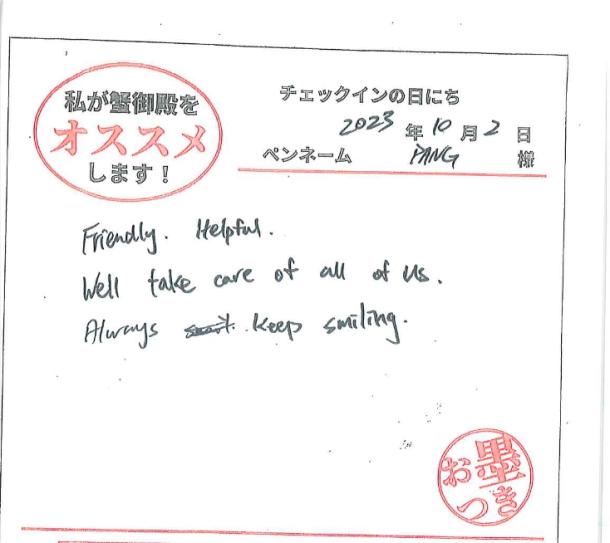 私が蟹御殿を
オススメ
します！
チェックインの日にち
2023年10月2日
ペンネーム PANG 様
Friendly. Helpful.
Well take care of all of us.
Always keep smiling.
お墨つき